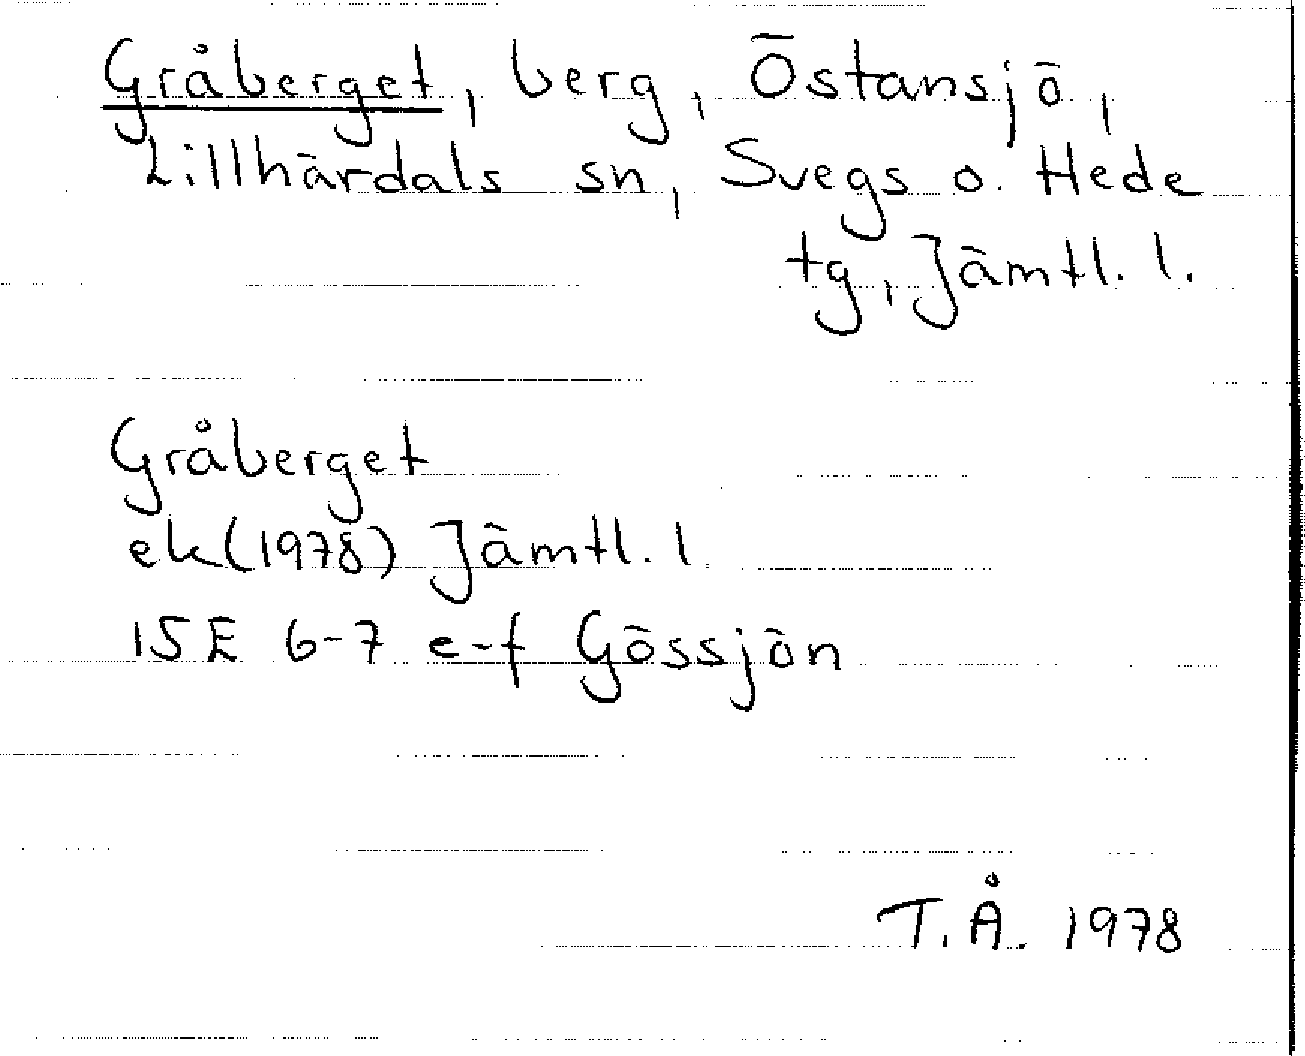 Gråberget, berg, Östansjö,
Lillhärdals sn, Svegs o. Hede
tg, Jämtl. l.
Gråberget
ek(1978) Jämtl. l.
15E 6-7 e-f Gössjön
T.Å. 1978